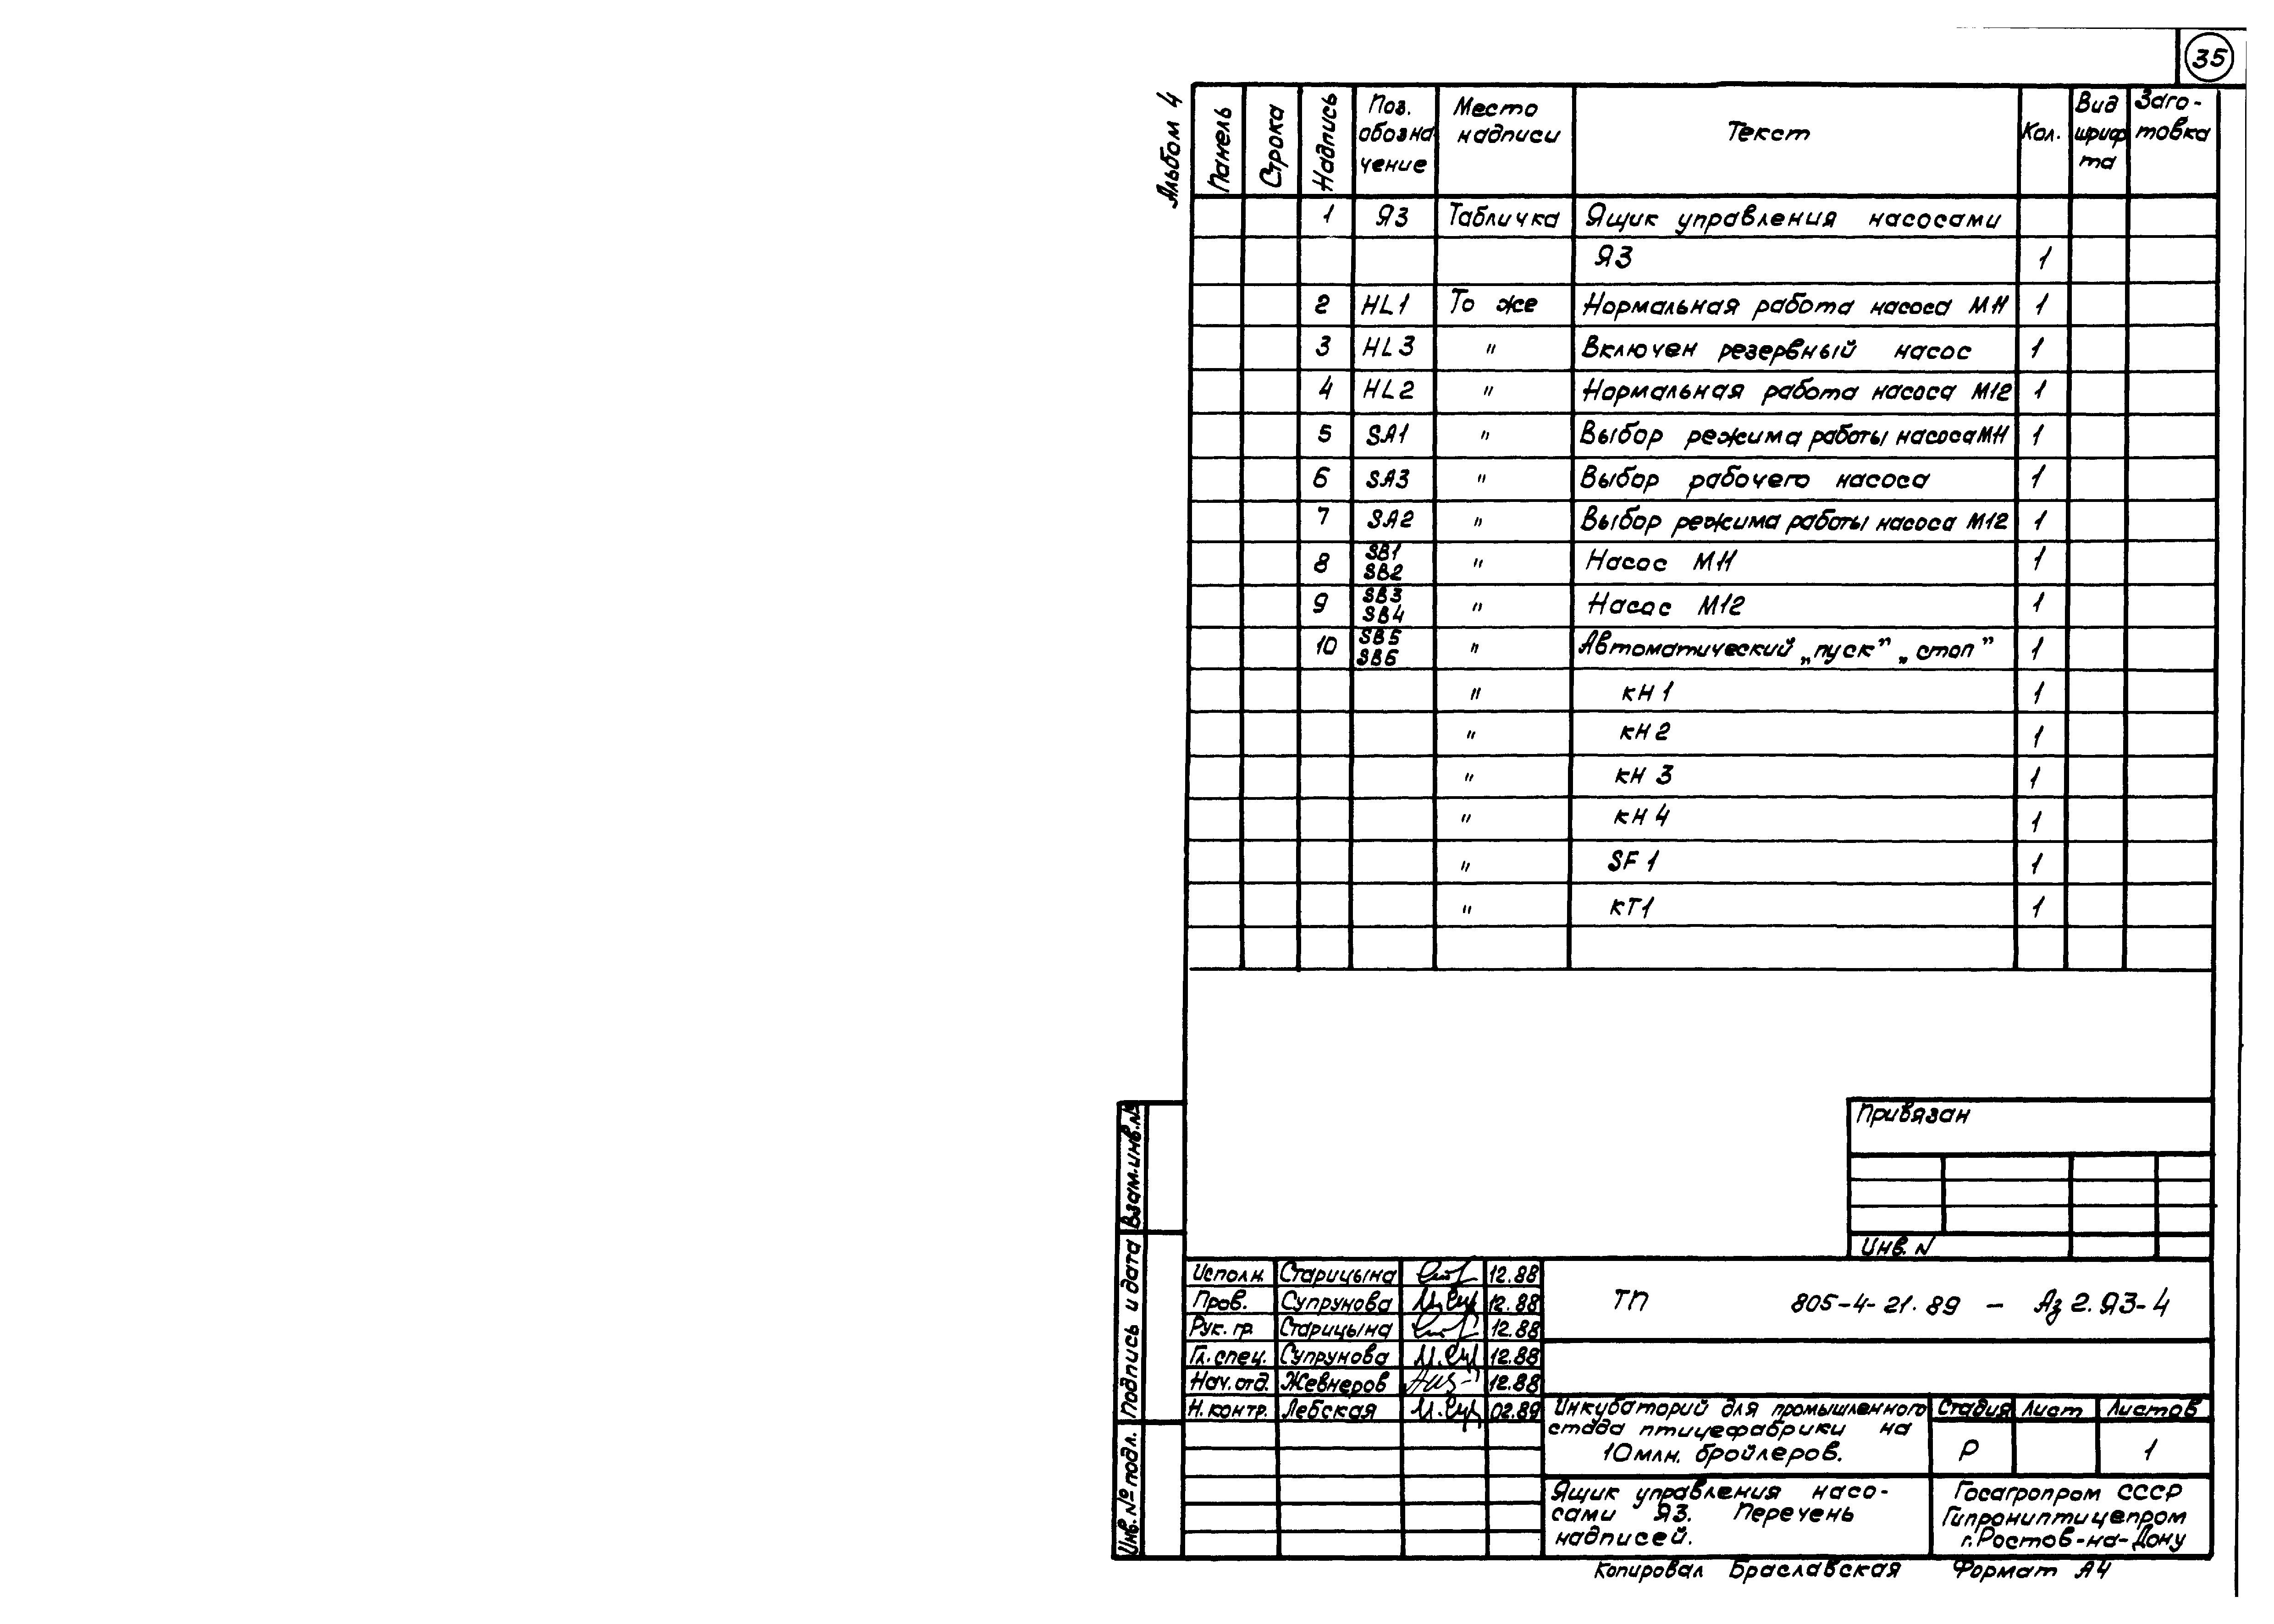 35
Альбом 4
Панель Строка Надпись Поз. обозначение Место надписи Текст Кол. Вид шрифта Заго-товка
1 Я3 Табличка Ящик управления насосами
Я3 1
2 HL1 То же Нормальная работа насоса М11 1
3 HL3 " Включен резервный насос 1
4 HL2 " Нормальная работа насоса М12 1
5 SA1 " Выбор режима работы насоса М11 1
6 SA3 " Выбор рабочего насоса 1
7 SA2 " Выбор режима работы насоса М12 1
8 SB1 SB2 " Насос М11 1
9 SB3 SB4 " Насос М12 1
10 SB5 SB6 " Автоматический „пуск” „стоп” 1
" кН 1 1
" кН 2 1
" кН 3 1
" кН 4 1
" SF 1 1
" кТ1 1
Привязан
Инв. N
Взам.инв.№
Подпись и дата
Инв. № подл.
Исполн. Старицына 12.88
Пров. Супрунова 12.88
Рук. гр. Старицына 12.88
Гл. спец. Супрунова 12.88
Нач. отд. Жевнеров 12.88
Н. контр. Лебская 02.89
ТП 805-4-21.89 – Аз 2.Я3-4
Инкубаторий для промышленного
стада птицефабрики на
10 млн. бройлеров.
Стадия Лист Листов
Р 1
Ящик управления насо-
сами Я3. Перечень
надписей.
Госагропром СССР
Гипрониптицепром
г.Ростов-на-Дону
Копировал Браславская Формат А4